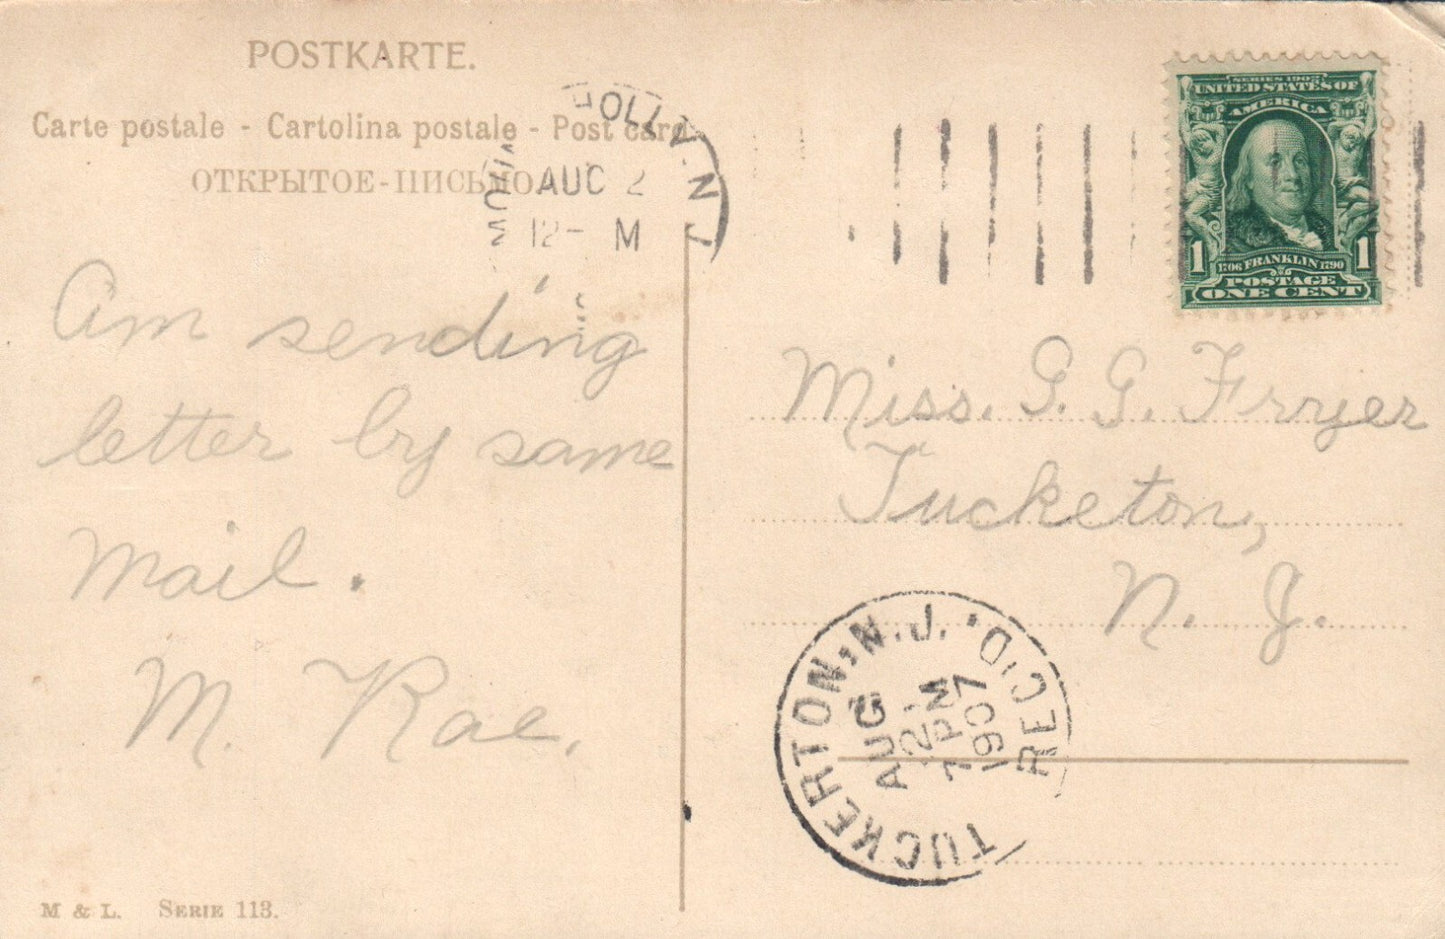 POSTKARTE.
Carte postale - Cartolina postale - Post card
ОТКРЫТОЕ-ПИСЬМО
MOUNT HOLLY, N.J.
AUG 2
12- M
SERIES 1902
UNITED STATES OF
AMERICA
1 1
1706 FRANKLIN 1790
POSTAGE
ONE CENT
Am sending
letter by same
mail.
M. Rae.
Miss. G. G. Fryer
Tucketon,
N. J.
TUCKERTON, N.J. REC'D.
AUG
2
7 PM
1907
M & L. SERIE 113.